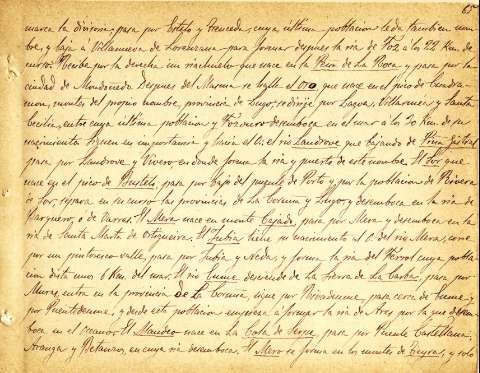 65
marca la divisoria, pasa por Estelo y Trenceda, cuya última poblacion le da tambien nom
bre, y baja a Villanueva de Lorenzana para formar despues la ria de Foz, a los 22 Km. de
curso. Recibe por la derecha un riachuelo que nace en la Peña de la Roca y pasa por la
ciudad de Mondoñedo. Despues del Masma se halla el Oro que nace en el pico de Cendra
mon, montes del propio nombre, provincia de Lugo, se dirije por Lagoa, Villarmea y Santa
Cecilia, entre cuya última poblacion y Foz desemboca en el mar a los 20 Km. de su
nacimiento. Siguen en importancia y hacia el O. el rio Landrove que bajando de Peña Gistral
pasa por Landrove y Vivero, en donde forma la ria y puerto de este nombre. El Sor que
nace en el pico de Bustelo, pasa por bajo del puente de Porto y por la poblacion de Rivera
de Sor, separa en su curso las provincias de La Coruña y Lugo y desemboca en la ria de
Barquero, o de Vares. El Mera nace en monte Cajado, pasa por Mera y desemboca en la
ria de Santa Marta de Ortigueira. El Jubia tiene su nacimiento al O. del rio Mera, corre
por un pintoresco valle, pasa por Jubia y Neda, y forma la ria del Ferrol cuya pobla
cion dista unos 6 Km. del mar. El rio Eume desciende de la Sierra de La Carba, pasa por
Muras, entra en la provincia de La Coruña, sigue por Rivadeume, pasa cerca de Eume y
por Puentedeume, y desde esta poblacion empieza a formar la ria de Ares por la que desem
boca en el oceano. El Mandeo nace en la Cota de Serpe, pasa por Puente Castellana,
Aranga y Betanzos, en cuya ria desemboca. El Mero se forma en los montes de Tieyra, y solo